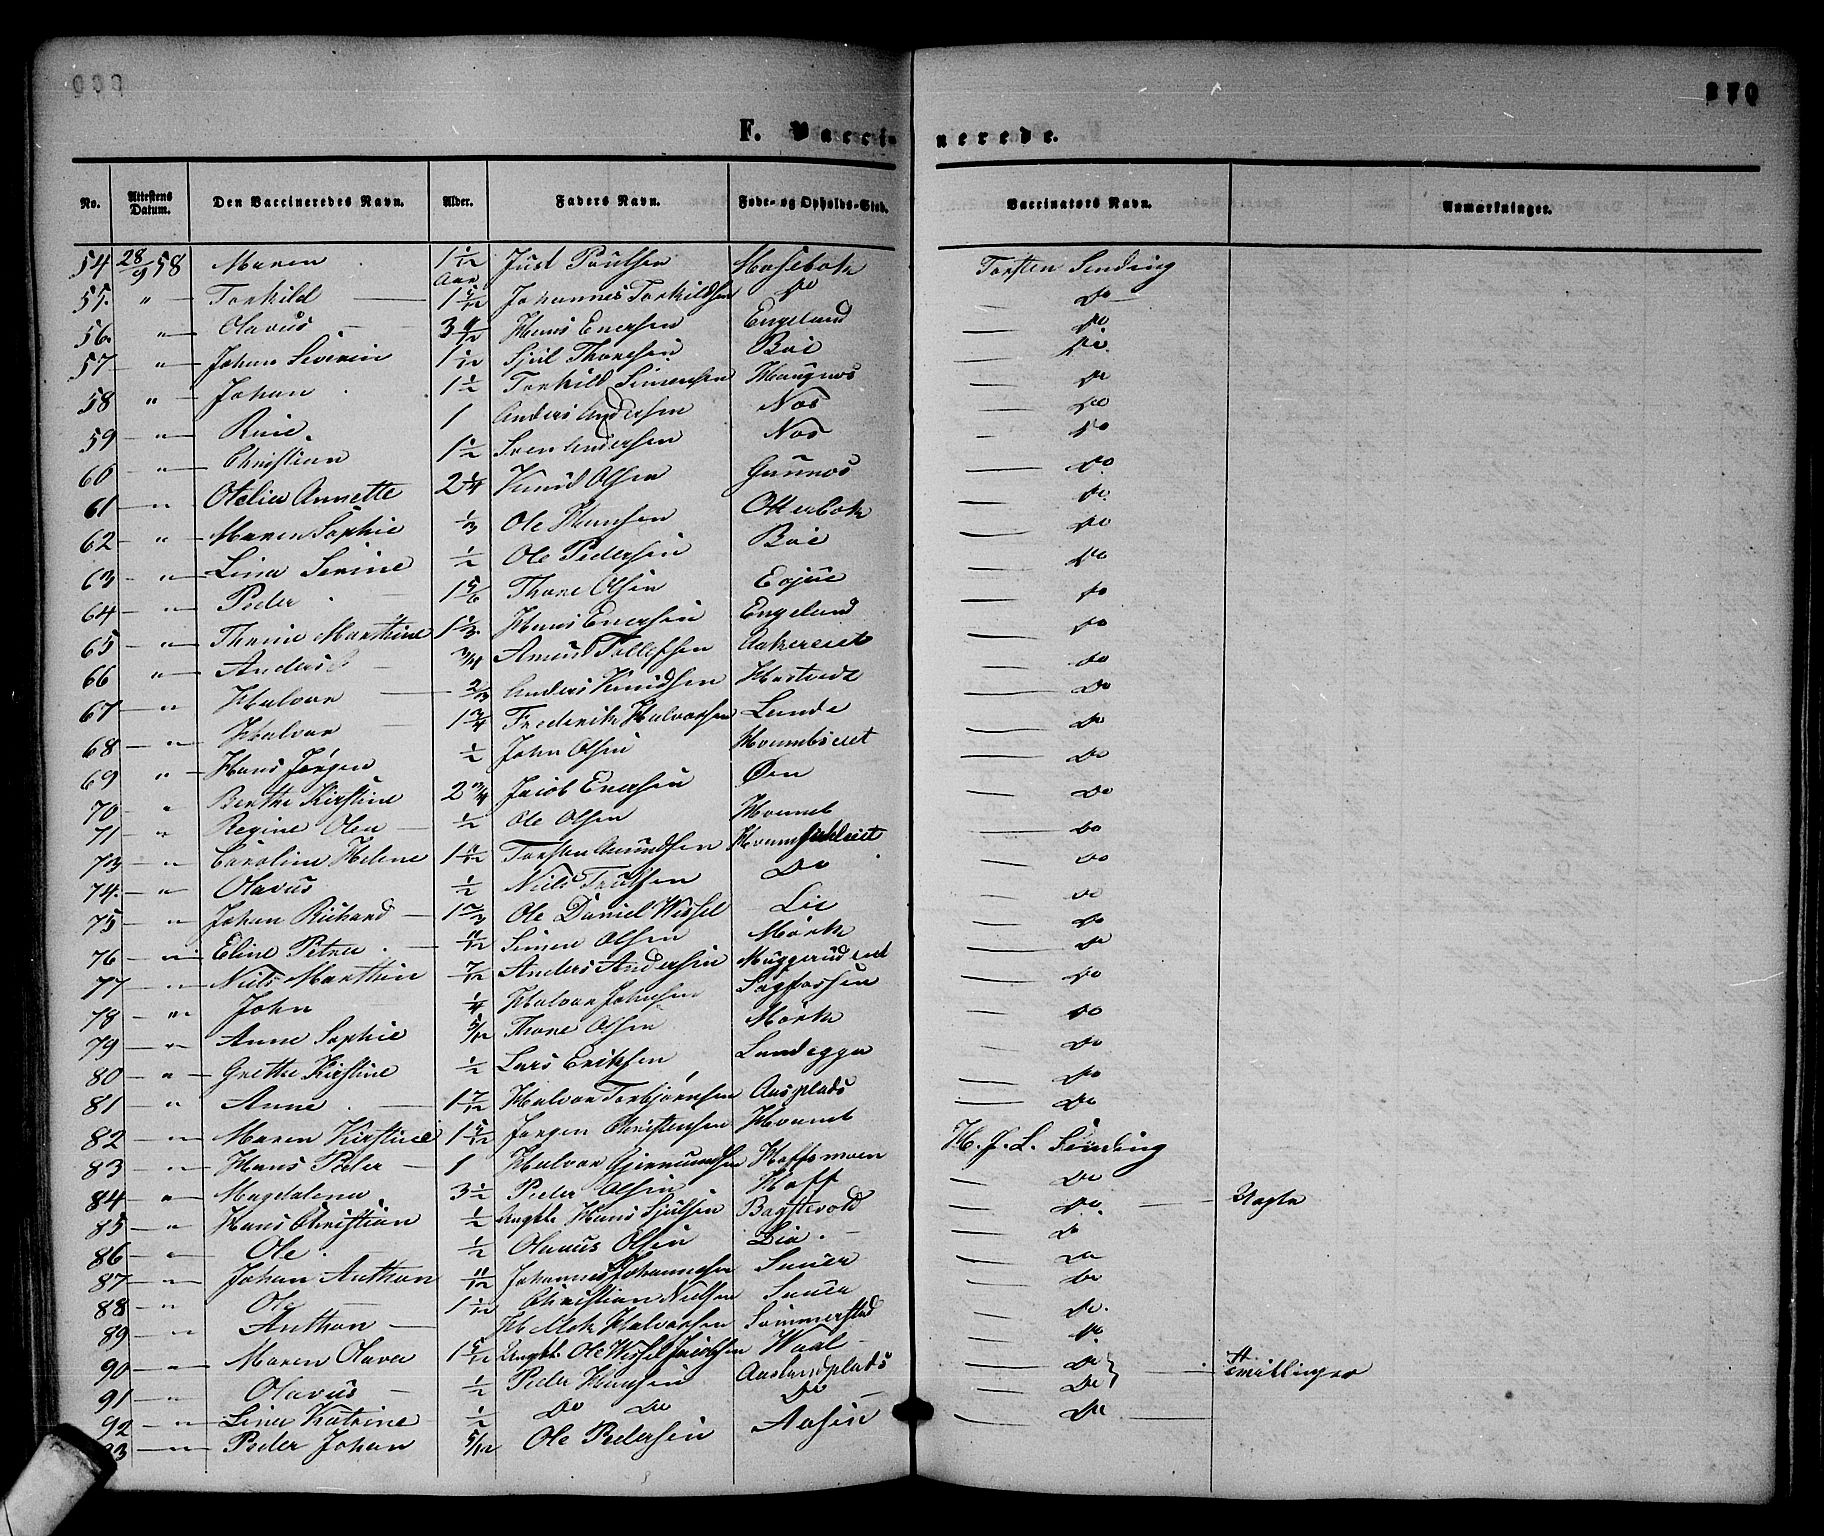 370
F. Vaccinerede.
No. Attestens Datum. Den Vaccineredes Navn. Alder. Faders Navn. Føde- og Opholds-Sted. Vaccinators Navn. Anmærkninger.
54 28/9 58 Maren 1 1/12 Aar Just Poulsen Hasebok Torsten Sending
55. " Torkild 1 5/12 Johannes Torkildsen Do Do
56. " Olavus 3 9/12 Hans Enersen Engelund Do
57 " Johan Severin 1 1/12 Sjul Thoresen Boe Do
58 " Johan 1 1/2 Torkild Simensen Haugnos Do
59 " Rine 1 Anders Andersen Nos Do
60 " Christian 1 1/2 Sven Andersen Nos Do
61 " Otelia Annette 2 1/4 Knud Olsen Gunnos Do
62 " Maren Sophie 1/3 Ole Hansen Otterbok Do
63 " Lina Serine 1/2 Ole Pedersen Boe Do
64 " Peder 1 5/6 Thore Olsen Do
65 " Thrine Marthine 1 1/3 Hans Enersen Engelund Do
66 " Anders 3/4 Amund Tollefsen Aakereiet Do
67 " Halvor 2/3 Anders Knudsen Hostvedt Do
68 " Halvor 1 3/4 Frederik Halvorsen Lunde Do
69 " Hans Jørgen 1/2 John Olsen Hvambseiet Do
70 " Berthe Kirstine 2 3/4 Jacob Enersen Øen Do
71 " Regine Olea 1/2 Ole Olsen Hvamb Do
73 " Caroline Helene 1 11/12 Torsten Amundsen Do
74. " Olavus 1/2 Niels Trulsen Do Do
75 " Johan Richard 1 2/3 Ole Daniel Wessel Lie Do
76 " Eline Petrea 11/12 Simen Olsen Mørk Do
77 " Niels Marthin 7/12 Anders Andersen Muggerud eiet Do
78 " John 1/4 Halvor Johnsen Sagfossen Do
79 " Anne Sophie 5/12 Thore Olsen Mørk Do
80 " Grethe Kirstine 1/2 Lars Eriksen Landegga Do
81 " Anne 1 7/12 Halvor Torbjørnsen Aasplads Do
82 " Maren Kirstine 1 5/12 Jørgen Christensen Hvamb Do
83 " Hans Peder 1 Halvor Gjermundsen Hoffsmoen H. J. L. Sending
84 " Magdalena 3 1/2 Peder Olsen Hoff Do
85 " Hans Christian 1/2 Ungkl Hans Sjulsen Bagstevold Do Uægte
86 " Ole 1/2 Olavus Olsen Lia Do
87 " Johan Anthon 11/12 Johannes Johannesen Sauer Do
88 " Ole 1 1/12 Christian Nielsen Sauer Do
89 " Anthon Halvorsen Sommerstad Do
90 " Maren Olava 1 5/12 Ungkl Ole Wessel Jacobsen Waal Do
91 " Olavus 1/2 Peder Hansen Aaslandplads Do Tvillinger
92 " Lina Katrine 1/2 Do Do Do Do
93 " Peder Johan 5/12 Ole Pedersen Aasen Do